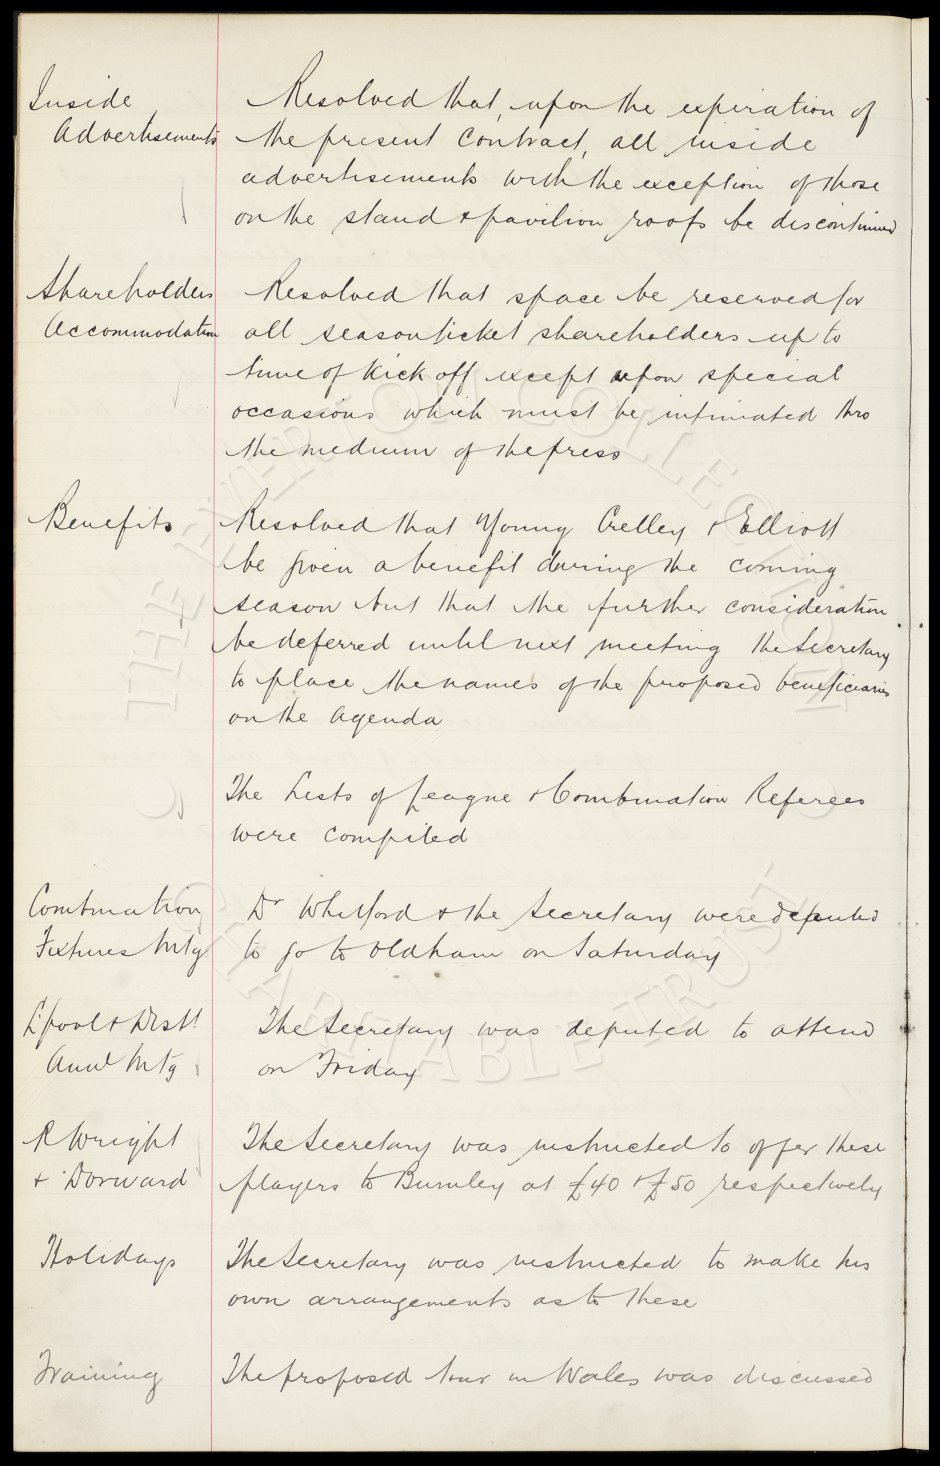 Inside
Advertisements
Resolved that, upon the expiration of
the present contract, all inside
advertisements with the exception of those
on the stand & pavilion roofs be discontinued
Shareholders
Accommodation
Resolved that space be reserved for
all season ticket shareholders up to
time of kick off except upon special
occasions which must be intimated thro
the medium of the press
Benefits
Resolved that Young Crelley & Elliott
be given a benefit during the coming
season but that the further consideration
be deferred until next meeting the Secretary
to place the names of the proposed beneficiaries
on the Agenda
The Lists of League & Combination Referees
were compiled
Combination
Fixtures Mtg
Dr Whitford & the Secretary were deputed
to go to Oldham on Saturday
L'pool & Distt
Annl Mtg
The Secretary was deputed to attend
on Friday
R Wright
& Dorward
The Secretary was instructed to offer these
players to Burnley at £40 & £50 respectively
Holidays
The Secretary was instructed to make his
own arrangements as to these
Training
The proposed tour in Wales was discussed
THE EVERTON COLLECTION
CHARITABLE TRUST